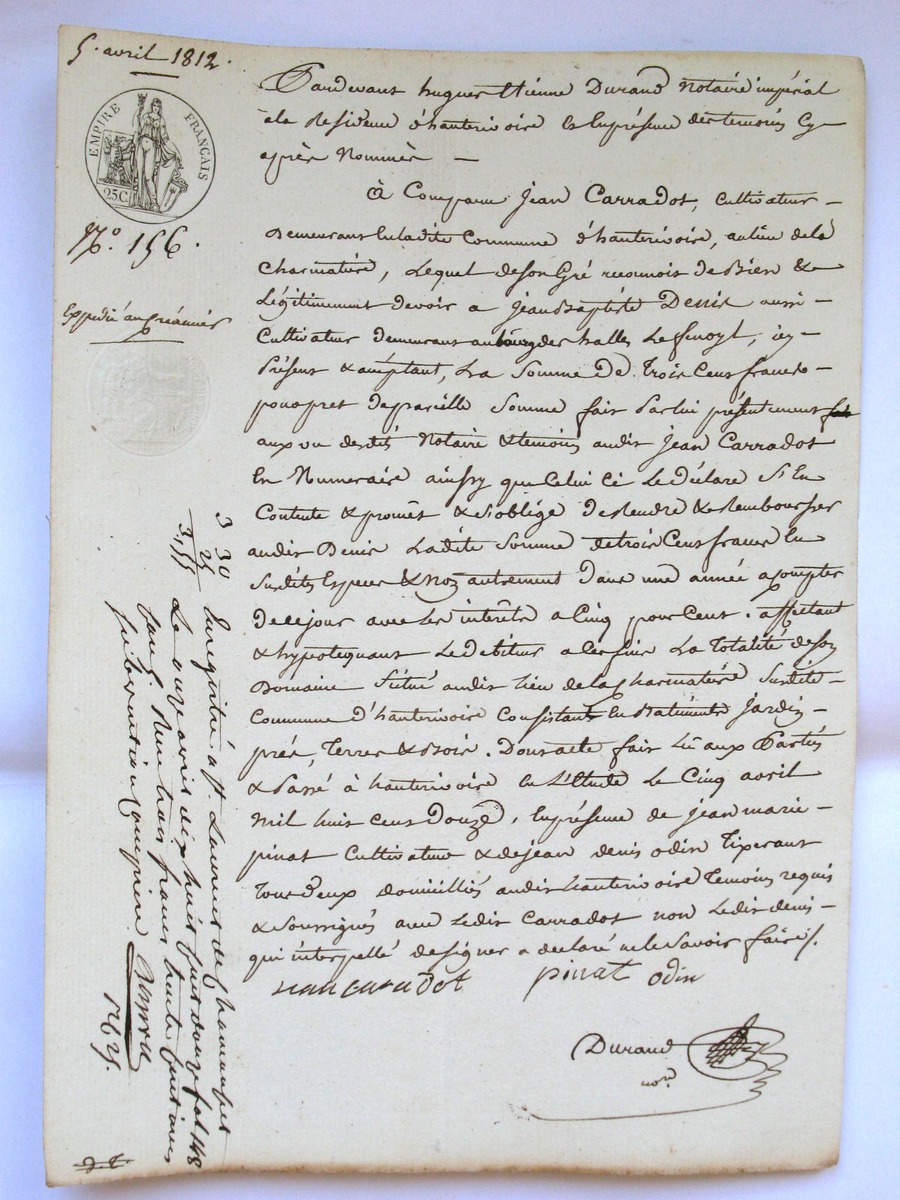 5. avril 1812.
EMPIRE FRANÇAIS
25C
N.º 156.
Expédié au Créancier
Pardevant hugues Etienne Durand Notaire impérial
à la Residence d'hauterivoire En présence des temoins Cy-
après Nommés —
à Comparu Jean Carradot, Cultivateur
Demeurant En ladite Commune d'hauterivoire, au lieu de la
Charmatière, Lequel de son Gré reconnois de Bien &
Légitimement devoir a Jean Baptiste Denis aussi
Cultivateur demeurant au bourg des halles Lefenoyl, icy
Présent & acéptant, La Somme De Trois Cent francs
pour pret de pareille Somme fait Par lui présentement
aux vu desdits Notaire & temoins audit Jean Carradot
En Numeraire ainsy que Celui Ci Le déclare S'En
Contente & promet & s'oblige De Rendre & Rembourser
audit Denis Ladite Somme de trois Cent francs En
Susdites Especes & Non autrement Dans une année a Compter
De ce jour avec les interêts a Cinq pour Cent. affectant
& hypotequant Le Debiteur a Ces fins La Totalité de son
Domaine Situé audit lieu de la Charmatière Susdite
Commune D'hauterivoire Consistant En Batiments Jardin
prés, Terres & Bois. Dont acte fait Lu aux Parties
& Passé à hauterivoire En L'Etude Le Cinq avril
Mil huit Cent Douze, En présence de Jean marie
pinat Cultivateur & de jean denis odin Tixerant
Tous Deux domiciliés audit hauterivoire Temoins requis
& Soussignés avec Ledit Carradot non Ledit denis
qui interpellé de signer a déclaré ne le Savoir faire/.
Jean Caradot pinat odin
Durand
no.re
3 30
25
3,55
Enregistré à St. Laurent de Chamousset
Le onze avril dix huit cent douze fol 148
trois francs trente centimes